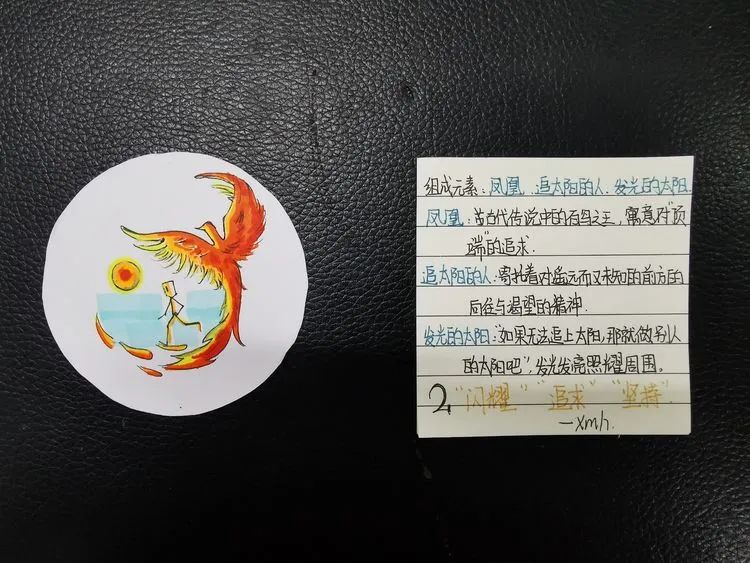 组成元素:凤凰、追太阳的人、发光的太阳.
凤凰:古古代传说中的百鸟之王,寓意对"顶
端"的追求.
追太阳的人:寄托着对遥远而又未知的前方的
向往与渴望的精神.
发光的太阳:"如果无法追上太阳,那就做别人
的太阳吧",发光发亮照耀周围。
2 "闪耀" "追求" "坚持".
—xmh.